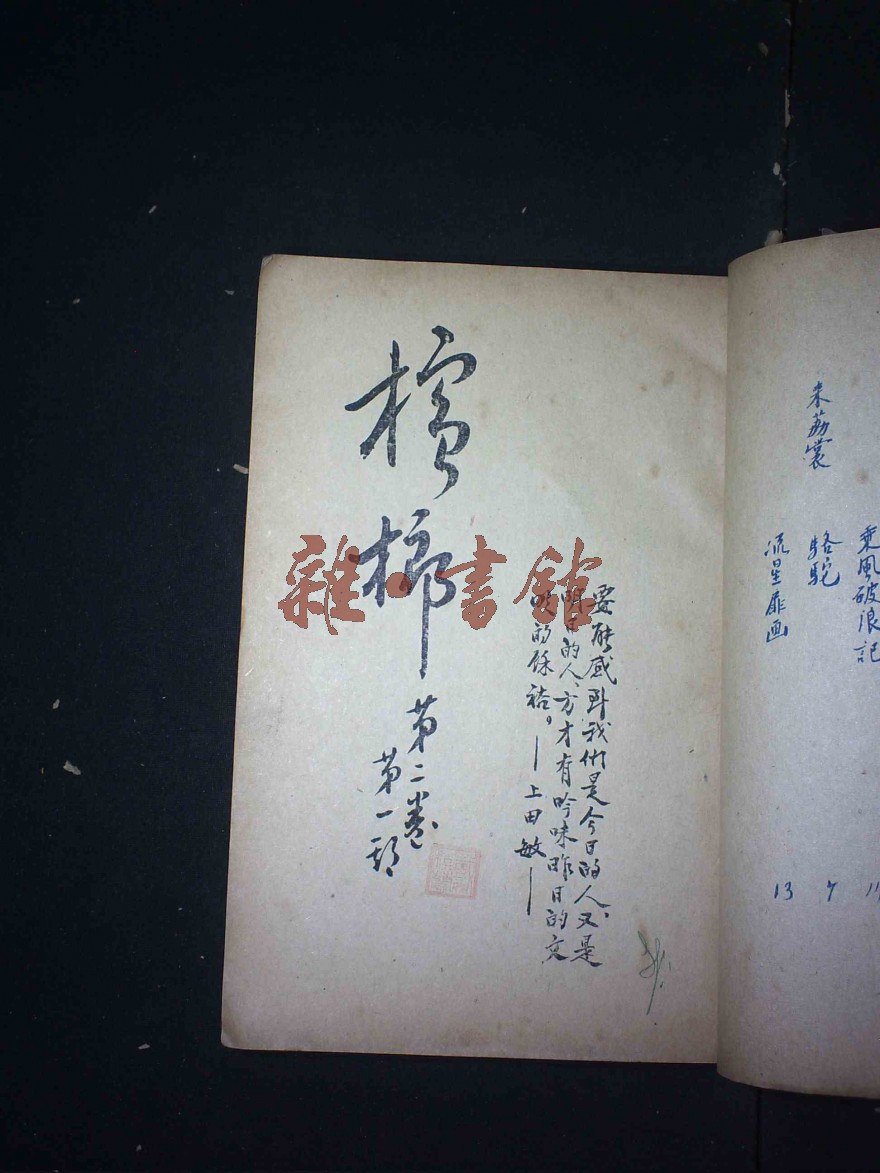 檳榔
第二卷
第一部
要能感到我們是今日的人、又是
明日的人、方才有吟味昨日的文
的餘裕。
——上田敏——
雜·書館
乘風破浪記
朱荔裳
駱駝
流星
画
13